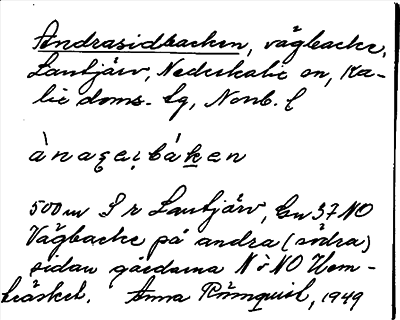 Andrasidbacken, vägbacke,
Lantjärv, Nederkalix sn, Ka-
lix doms. lg, Norrb. l
500 m S r Lantjärv, Gn 37 NO
Vägbacke på andra (södra)
sidan gårdarna N o NO Hem-
träsket. Anna Rönnqvist, 1949